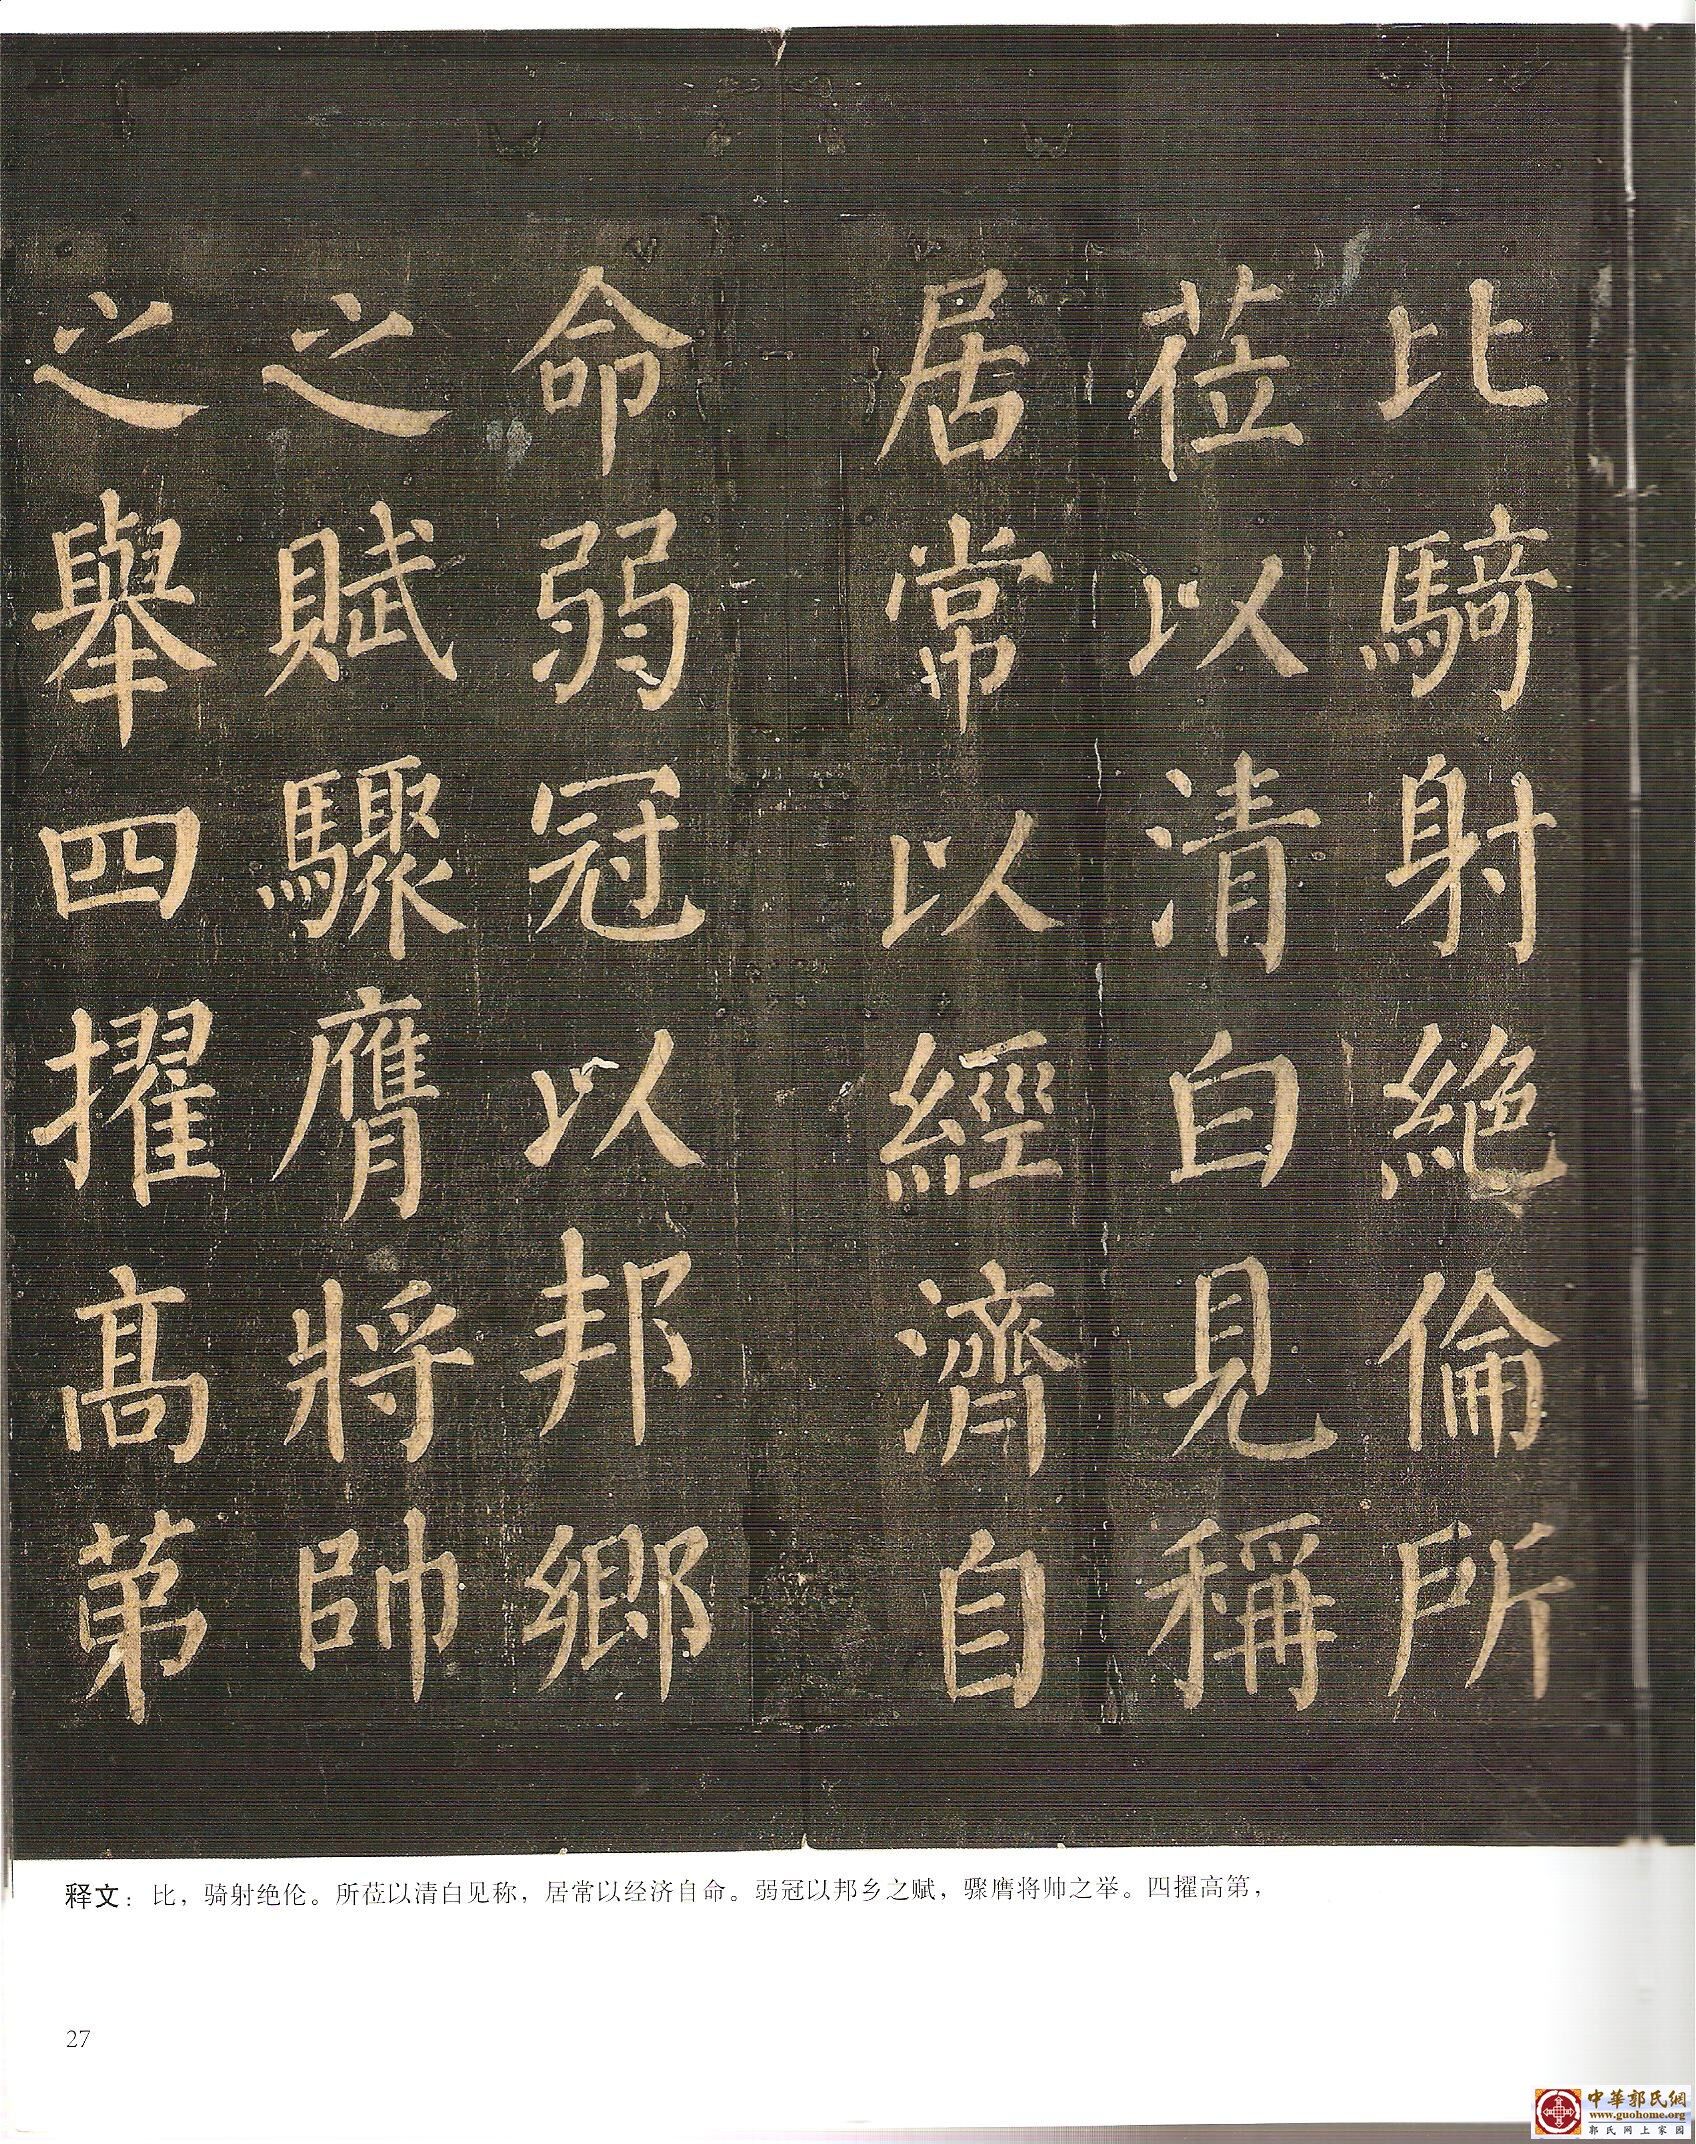 比騎射絶倫所
莅以清白見稱
居常以經濟自
命弱冠以邦鄉
之賦驟膺將帥
之舉四擢高第
释文：比，骑射绝伦。所莅以清白见称，居常以经济自命。弱冠以邦乡之赋，骤膺将帅之举。四擢高第，
27
中華郭氏網
www.guohome.org
郭氏网上家园